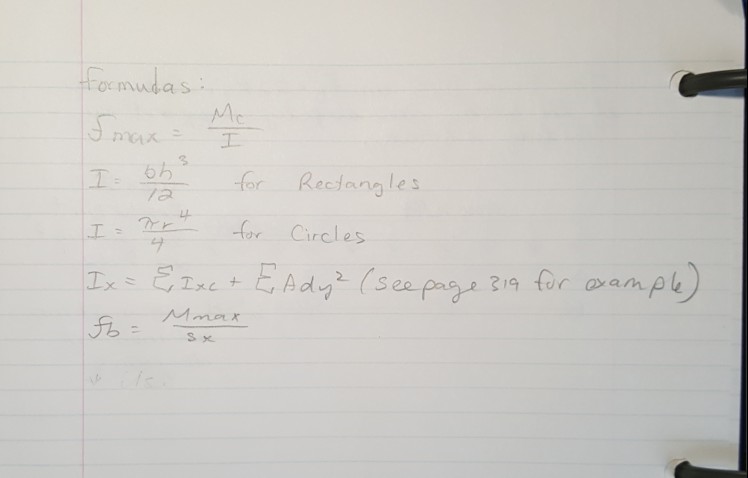 Formulas:
fmax = Mc/I
I = bh³/12 for Rectangles
I = πr⁴/4 for Circles
Ix = ΣIxc + ΣAdy² (see page 319 for example)
fb = Mmax/sx